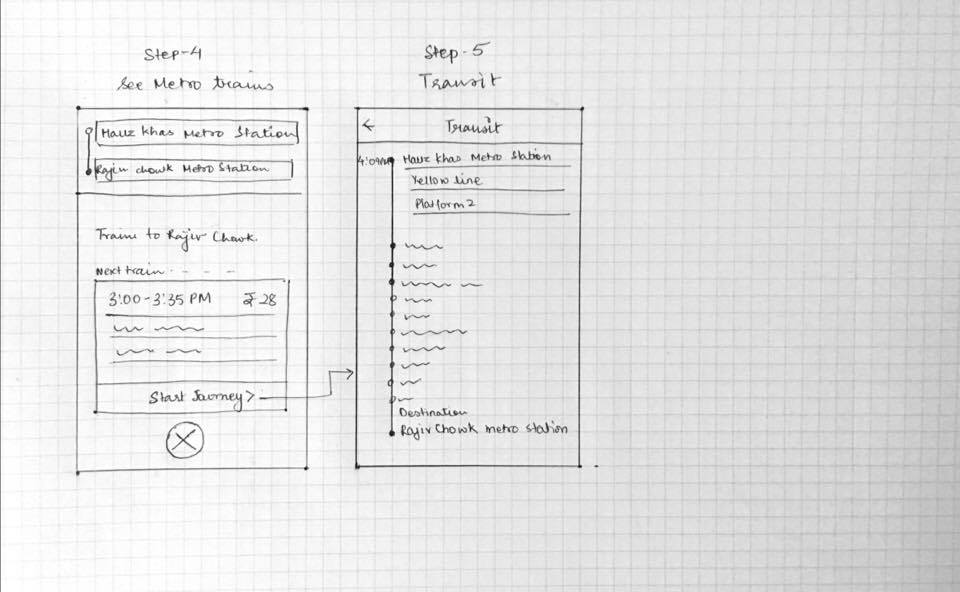 Step-4
See Metro trains
Hauz Khas Metro Station
Rajiv Chowk Metro Station
Trains to Rajiv Chowk.
Next train
3:00-3:35 PM ₹ 28
Start Journey >
Step-5
Transit
← Transit
Hauz Khas Metro Station
Yellow line
Platform 2
Destination
Rajiv Chowk metro station